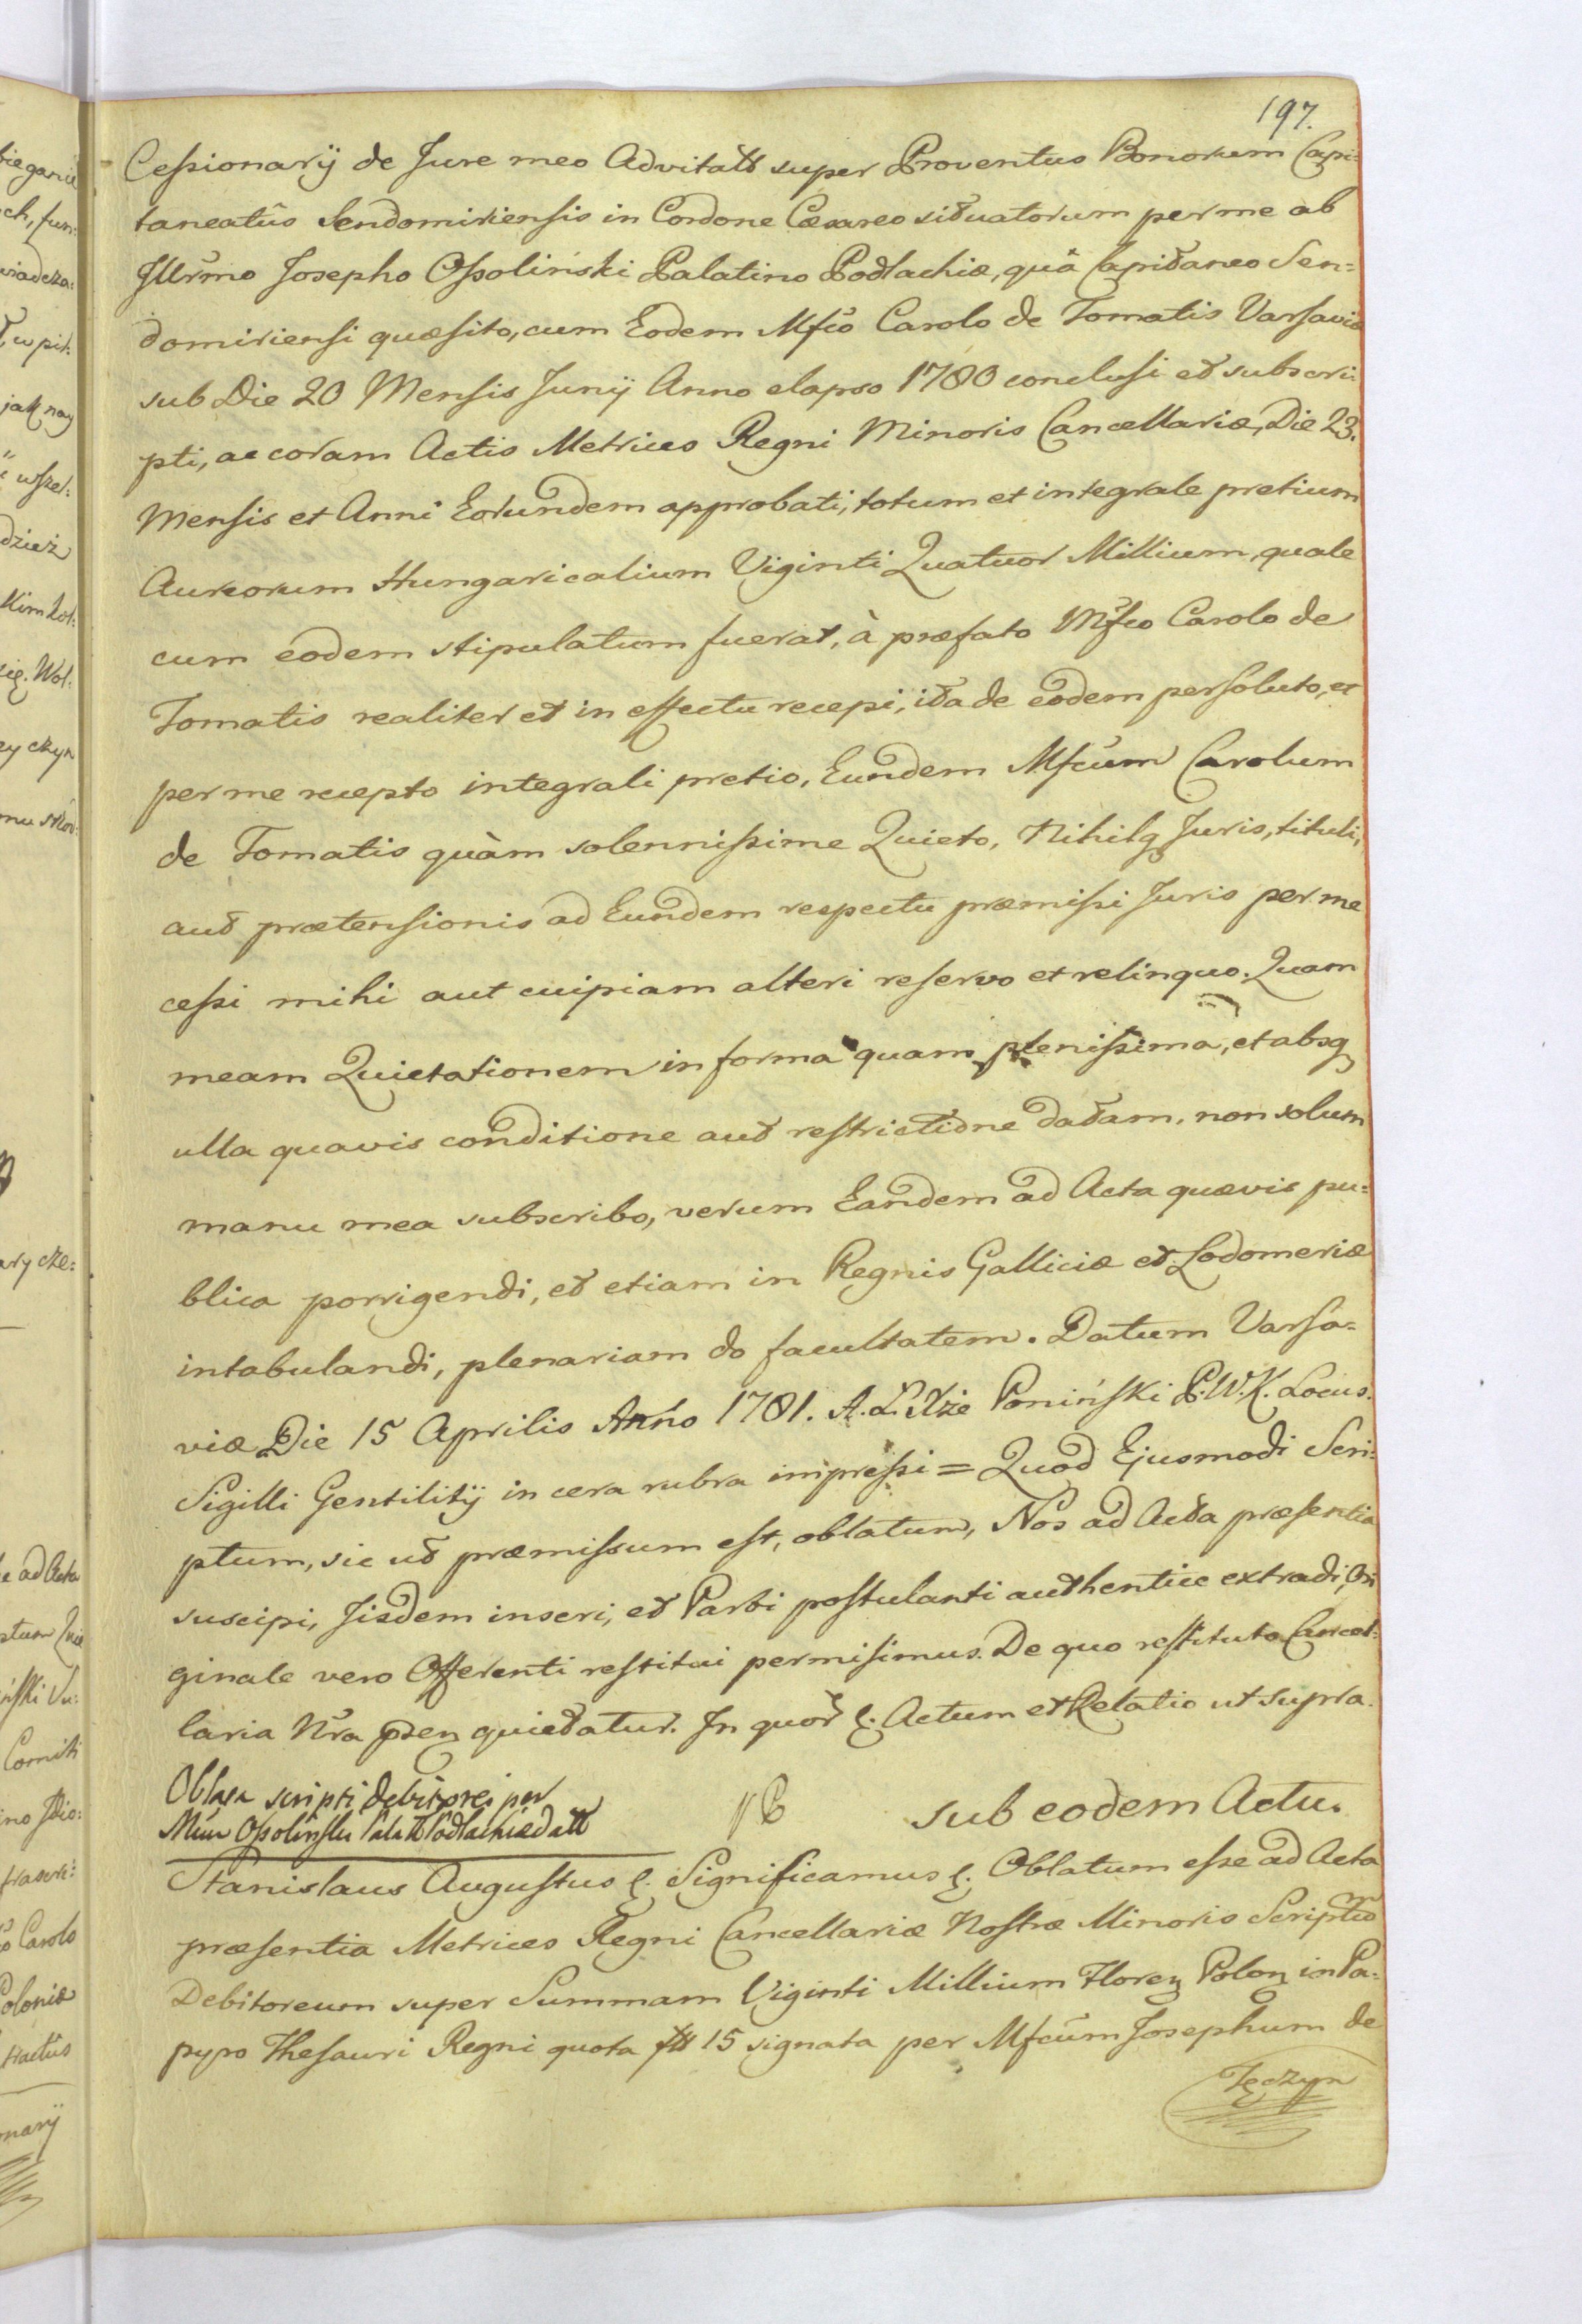 197.
Cessionarij de Jure meo Advitatt super Proventus Bonorum Capi=
taneatûs Sendomiriensis in Cordone Cæsareo situatorum per me ab
Illrmo Josepho Ossoliński Palatino Podlachiæ, quâ Capitaneo Sen=
domiriensi quæsito, cum Eodem Mfco Carolo de Tomatis Varsaviæ
sub Die 20 Mensis Junij Anno elapso 1780 conclusi et subscri=
pti, ac coram Actis Metrices Regni Minoris Cancellariæ, Die 23.
Mensis et Anni Eorundem approbati, totum et integrale pretium
Aureorum Hungaricalium Viginti Quatuor Millium, quale
cum eodem stipulatum fuerat, à præfato Mfco Carolo de
Tomatis realiter et in effectu recepi, ita de eodem persoluto, et
per me recepto integrali pretio, Eundem Mfcum Carolum
de Tomatis quàm solennissime Quieto, Nihilq Juris, tituli,
aut prætensionis ad Eundem respectu præmissi Juris per me
cessi mihi aut cuipiam alteri reservo et relinquo. Quam
meam Quietationem in forma quam plenissima, et absq
ulla quavis conditione aut restrictione datam, non solum
manu mea subscribo, verum Eandem ad Acta quævis pu=
blica porrigendi, et etiam in Regnis Galliciæ et Lodomeriæ
intabulandi, plenariam do facultatem. Datum Varsa=
viæ Die 15 Aprilis Anno 1781. A. Ł. Xże Poniński P. W. K. Locus.
Sigilli Gentilitij in cera rubra impressi = Quod Ejusmodi Scri=
ptum, sic ut præmissum est, oblatum, Nos ad Acta præsentia
suscipi, Jisdem inseri, et Parti postulanti authentice extradi, Ori
ginale vero Offerenti restitui permisimus. De quo restituto Cancel=
laria Nra psen quietatur. In quor &. Actum et Relatio ut supra.
Oblata scripti debitores per
Mcum Ossoliński Palatt Podlachiæ datt
sub eodem Actu.
Stanislaus Augustus &. Significamus &. Oblatum esse ad Acta
præsentia Metrices Regni Cancellariæ Nostræ Minoris Scriptum
Debitoreum super Summam Viginti Millium Floren Polon in Pa=
pyro Thesauri Regni quota 15 signata per Mfcum Josephum de
Tęczyn